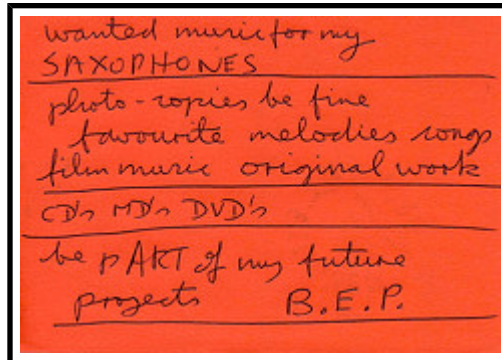 wanted music for my
SAXOPHONES
photo-copies be fine
favourite melodies songs
film music original work
CD's MD's DVD's
be PART of my future
projects B.E.P.